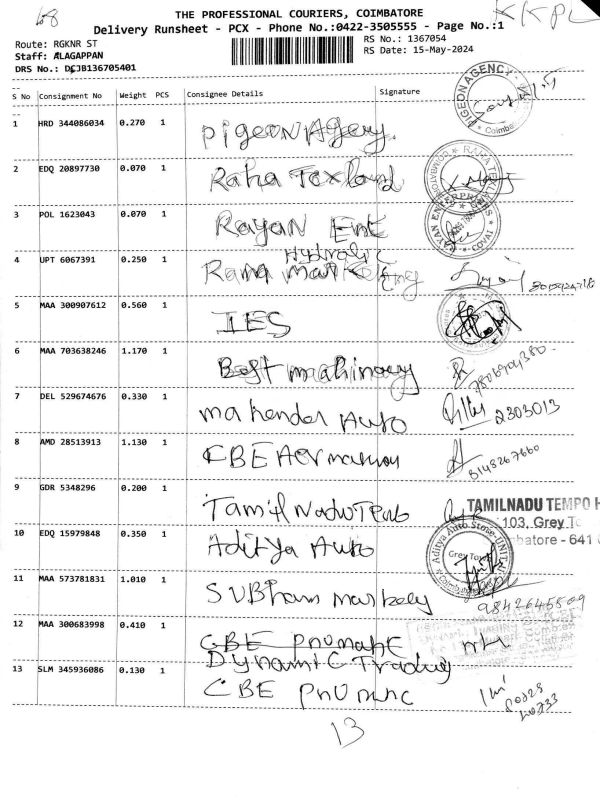 68
KKPL
THE PROFESSIONAL COURIERS, COIMBATORE
Delivery Runsheet - PCX - Phone No.:0422-3505555 - Page No.:1
Route: RGKNR ST
RS No.: 1367054
Staff: ALAGAPPAN
RS Date: 15-May-2024
DRS No.: DCJB136705401
S No Consignment No Weight PCS Consignee Details Signature
PIGEON AGENCY
1 HRD 344086034 0.270 1 Pigeon Agency
2 EDQ 20897730 0.070 1 Raha Texland
3 POL 1623043 0.070 1 Rayan Ent
RAYAN ENTERPRISES
COVAI
Hydralic
4 UPT 6067391 0.250 1 Rama Marketing
5 MAA 300907612 0.560 1 IES
6 MAA 703638246 1.170 1 Best machinary
7 DEL 529674676 0.330 1 mahender Auto 2303013
8 AMD 28513913 1.130 1 CBE 8148267660
9 GDR 5348296 0.200 1 Tamil Nadu Tempo
TAMILNADU TEMPO H
103, Grey T
batore - 641
10 EDQ 15979848 0.350 1 Aditya Auto
Aditya Auto Store-UNIT
Grey Town
11 MAA 573781831 1.010 1 Subham markely 9842645509
12 MAA 300683998 0.410 1 CBE Pnumatic
Dynamic Trading
13 SLM 345936086 0.130 1 CBE
13